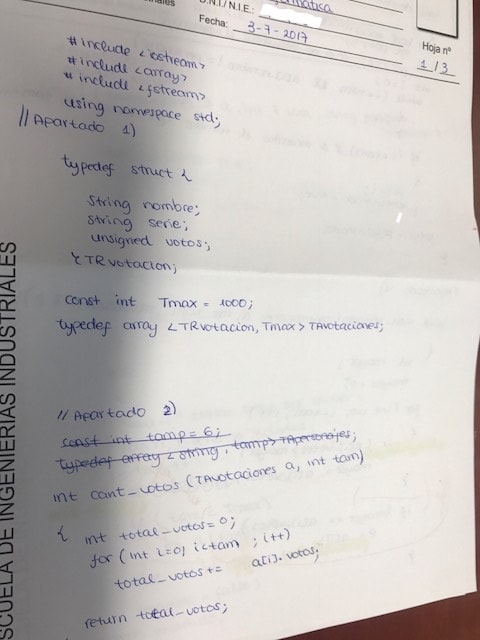 D.N.I./ N.I.E.:
Fecha: 3-7-2017
Hoja nº
1 / 3
# include <iostream>
# include <array>
# include <fstream>
using namespace std;
// Apartado 1)
typedef struct {
string nombre;
string serie;
unsigned votos;
} TRvotacion;
const int Tmax = 1000;
typedef array <TRvotacion, Tmax> TAvotaciones;
// Apartado 2)
const int tamp = 6;
typedef array <string, tamp> TApersonajes;
int cant_votos (TAvotaciones a, int tam)
{ int total_votos = 0;
for (int i=0; i<tam ; i++)
total_votos += a[i].votos;
return total_votos;
ESCUELA DE INGENIERIAS INDUSTRIALES